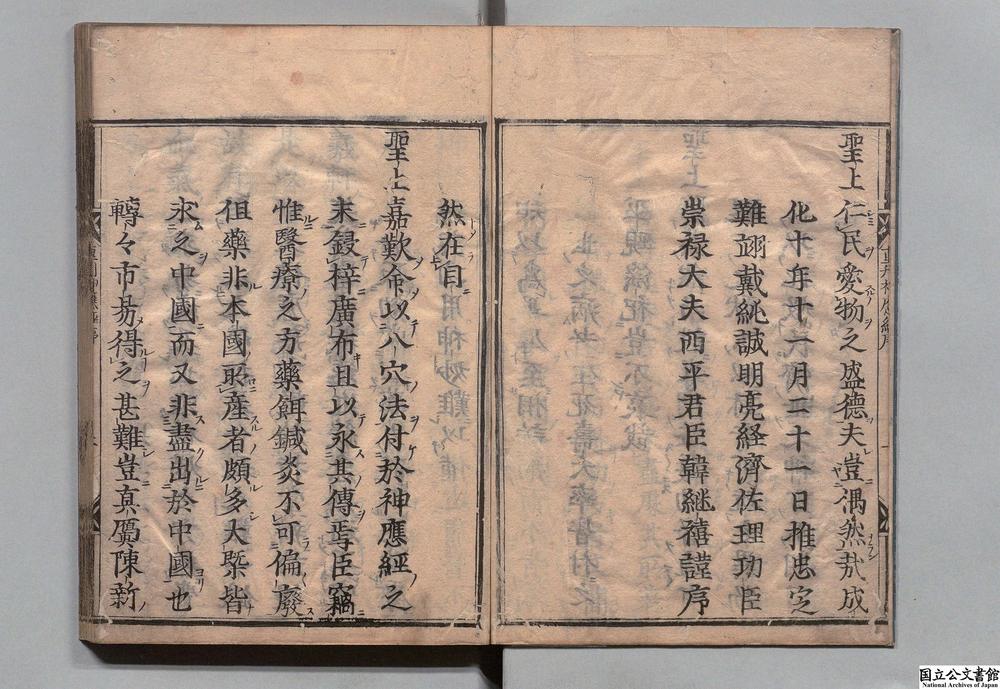 聖上仁民愛物之盛德夫豈偶然哉成
化十年十一月二十一日推忠定
難翊戴純誠明亮経濟佐理功臣
崇禄大夫西平君臣韓継禧謹序
然在目
聖上嘉歎命以八穴法付於神應經之
末鋟梓廣布且以永其傳焉臣竊
惟醫療之方藥餌鍼灸不可偏廢
但藥非本國所産者頗多大槩皆
求之中國而又非盡出於中國也
轉々市易得之甚難豈真贋陳新
国立公文書館
National Archives of Japan